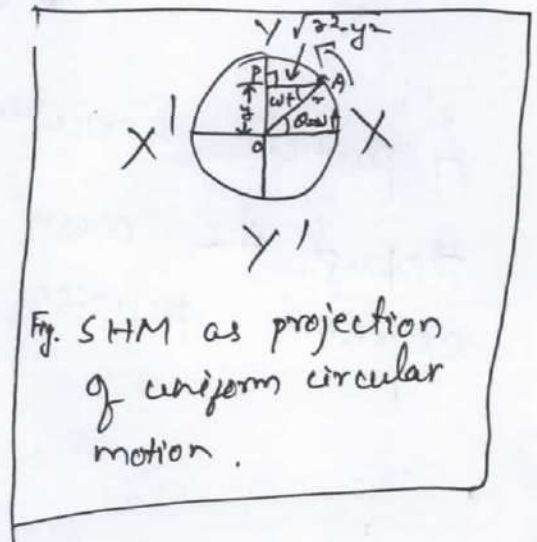 Y √r²-y²
P
A
ωt r
y
θ=ωt
X' O X
Y'
Fig. SHM as projection
of uniform circular
motion.